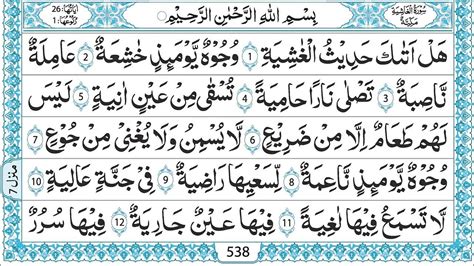 اٰيَاتُهَا: 26
رُكُوْعُهَا: 1
بِسْمِ اللّٰهِ الرَّحْمٰنِ الرَّحِيْمِ
سُوْرَةُ الْغَاشِيَةِ
مَكِّيَّةٌ
هَلْ اَتٰىكَ حَدِيْثُ الْغَاشِيَةِ 1 وُجُوْهٌ يَّوْمَىِٕذٍ خَاشِعَةٌ 2 عَامِلَةٌ
نَّاصِبَةٌ 3 تَصْلٰى نَارًا حَامِيَةً 4 تُسْقٰى مِنْ عَيْنٍ اٰنِيَةٍ 5 لَيْسَ
لَهُمْ طَعَامٌ اِلَّا مِنْ ضَرِيْعٍ 6 لَّا يُسْمِنُ وَلَا يُغْنِيْ مِنْ جُوْعٍ 7
وُجُوْهٌ يَّوْمَىِٕذٍ نَّاعِمَةٌ 8 لِّسَعْيِهَا رَاضِيَةٌ 9 فِيْ جَنَّةٍ عَالِيَةٍ 10
لَّا تَسْمَعُ فِيْهَا لَاغِيَةً 11 فِيْهَا عَيْنٌ جَارِيَةٌ 12 فِيْهَا سُرُرٌ
منزل 7
538